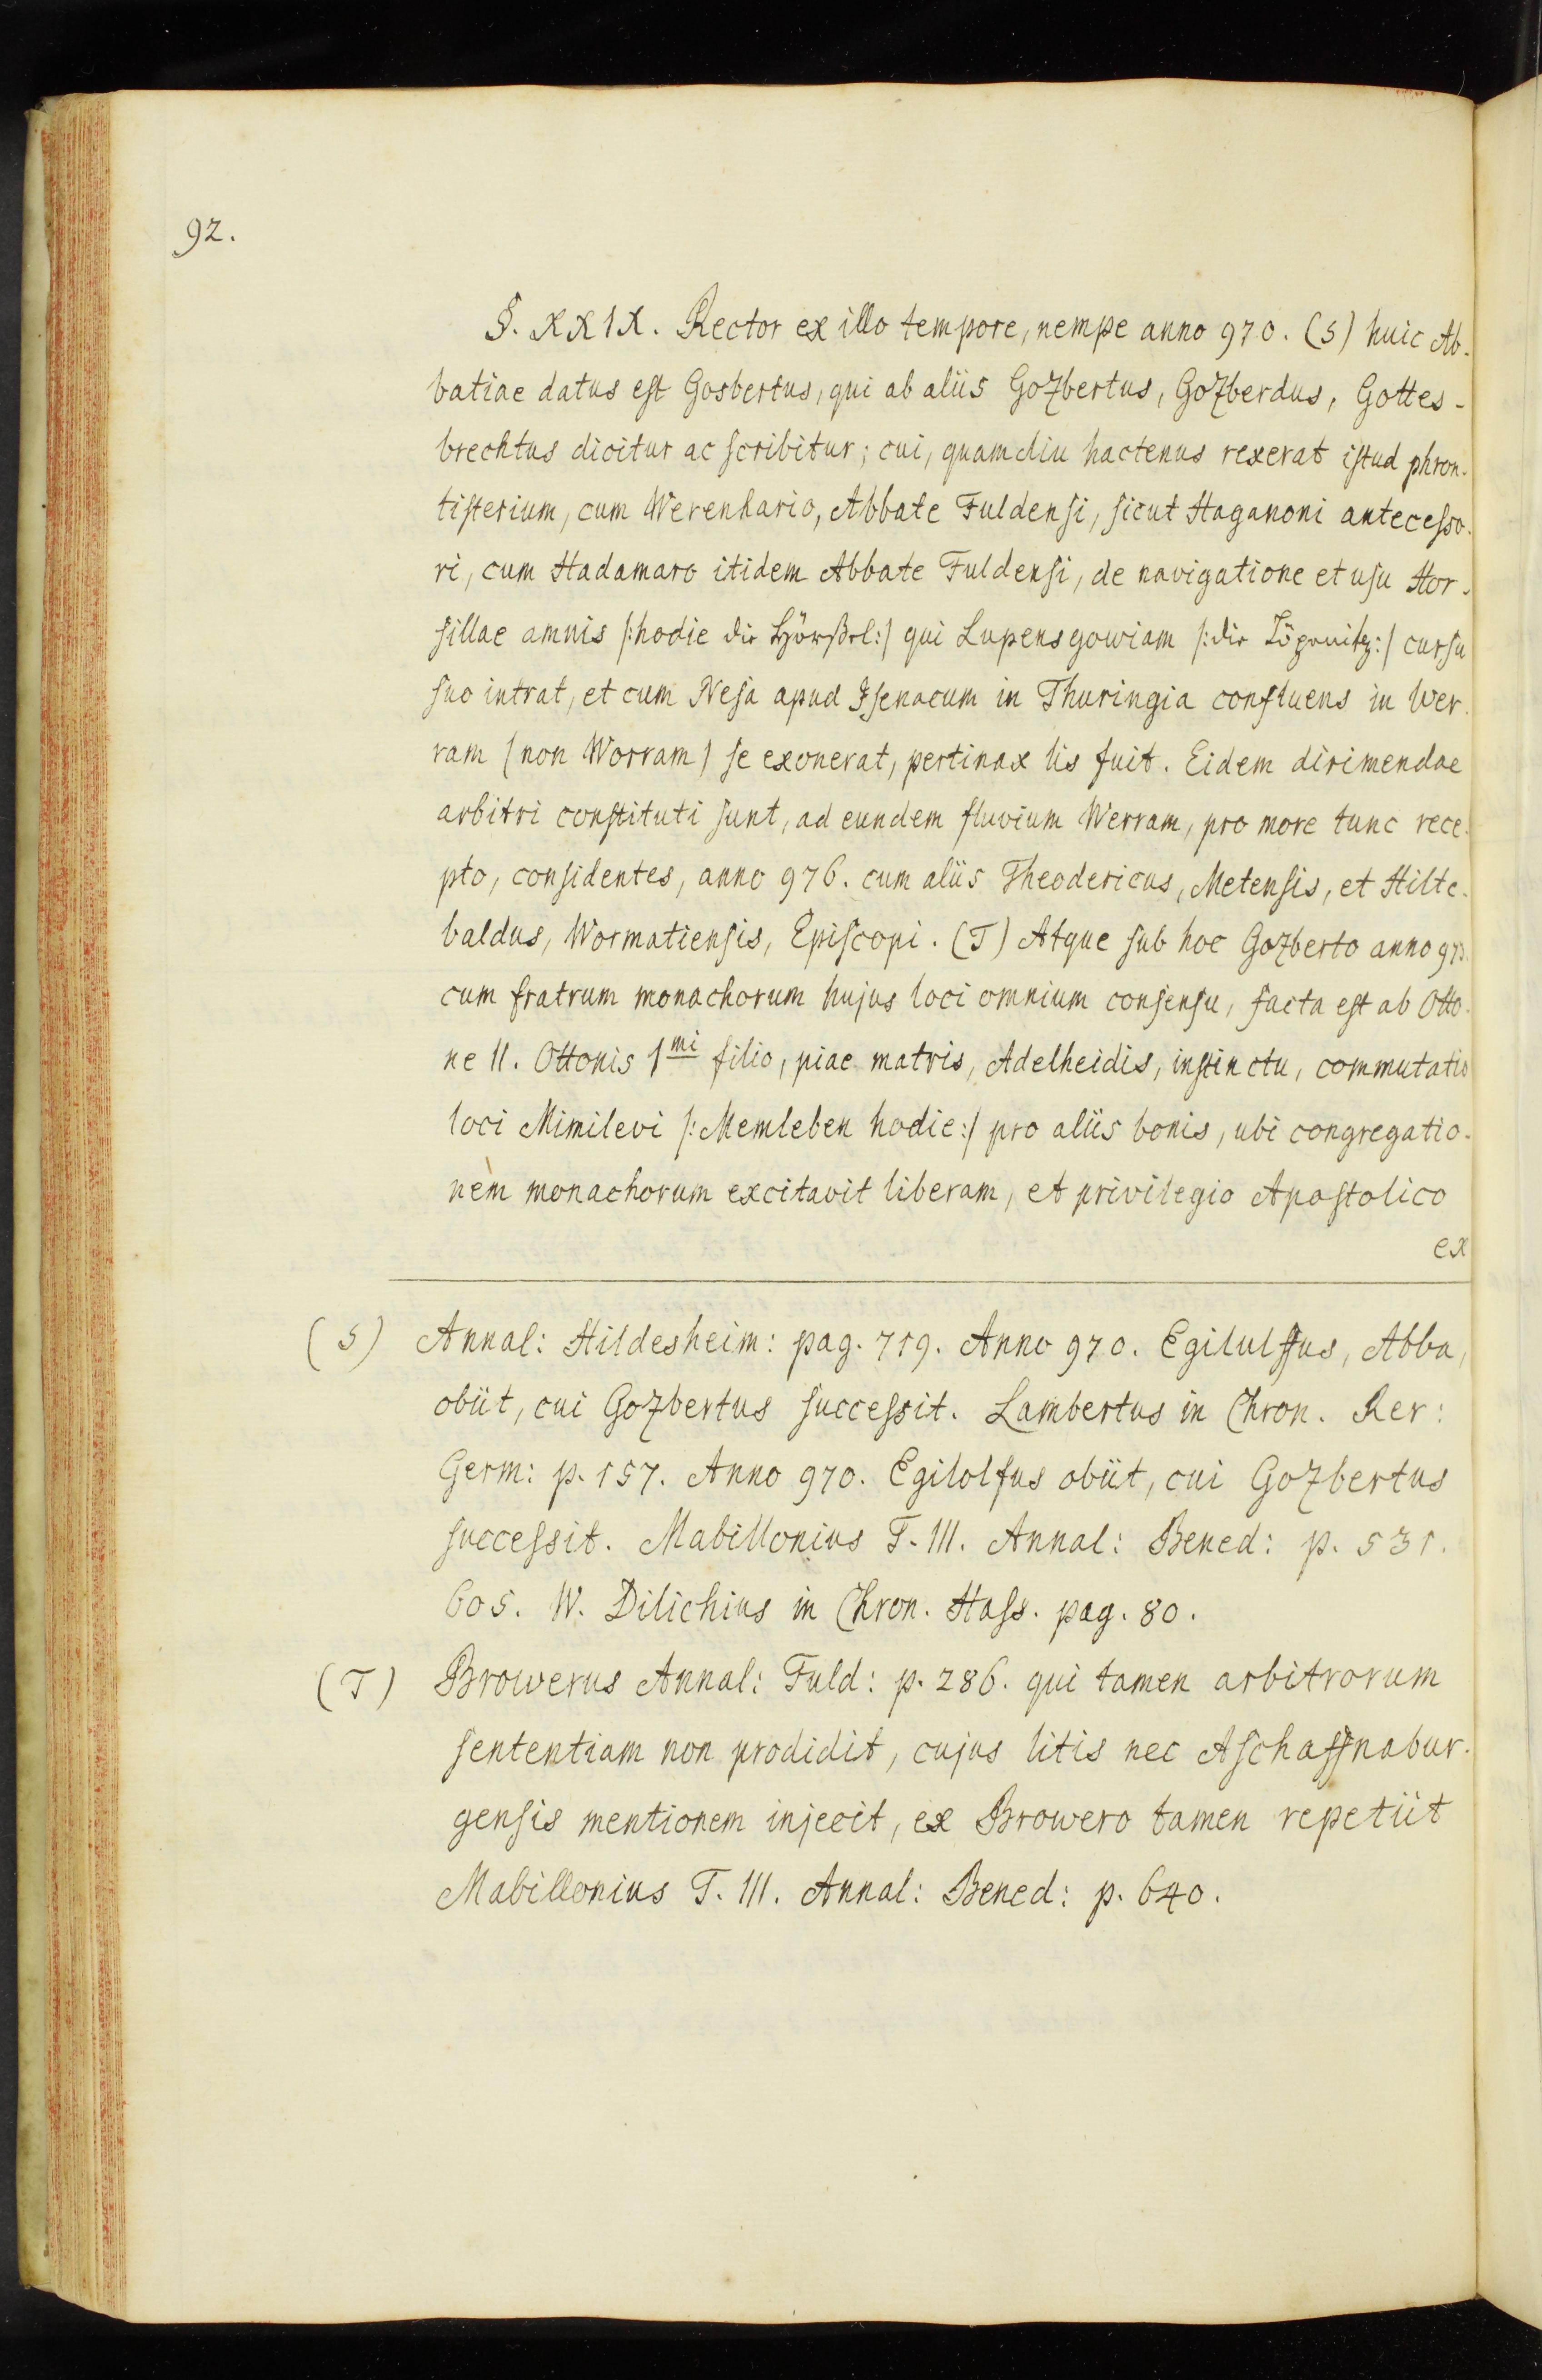 92.
§. XXIX. Rector ex illo tempore, nempe anno 970. (S) huic Ab-
batiae datus eſt Gosbertus, qui ab aliis Gozbertus, Gozberdus, Gottes-
brechtus dicitur ac ſcribitur; cui, quamdiu hactenus rexerat iſtud phron-
tiſterium, cum Werenhario, Abbate Fuldenſi, ſicut Haganoni anteceſso-
ri, cum Hadamaro itidem Abbate Fuldenſi, de navigatione et uſu Hor-
ſillae amnis |:hodie die Hörßel:| qui Lupensgowiam |:die :| curſu
ſuo intrat, et cum Neſa apud Iſenacum in Thuringia confluens in Wer-
ram (non Worram) ſe exonerat, pertinax lis fuit. Eidem dirimendae
arbitri conſtituti ſunt, ad eundem fluvium Werram, pro more tunc rece-
pto, conſidentes, anno 976. cum aliis Theodericus, Metenſis, et Hilte-
baldus, Wormatienſis, Epiſcopi. (T) Atque ſub hoc Gozberto anno
cum fratrum monachorum hujus loci omnium conſenſu, facta eſt ab Otto-
ne II. Ottonis 1mi filio, piae matris, Adelheidis, inſtinctu, commutatio
loci Mimilevi |:Memleben hodie:| pro aliis bonis, ubi congregatio-
nem monachorum excitavit liberam, et privilegio Apoſtolico
ex
(S) Annal: Hildesheim: pag. 719. Anno 970. Egilulffus, Abba,
obiit, cui Gozbertus ſucceſsit. Lambertus in Chron. Rer:
Germ: p. 157. Anno 970. Egilolfus obiit, cui Gozbertus
ſucceſsit. Mabillonius T. III. Annal: Bened: p. 531.
605. W. Dilichius in Chron. Haſs. pag. 80.
(T) Browerus Annal: Fuld: p. 286. qui tamen arbitrorum
ſententiam non prodidit, cujus litis nec Aſchaffnabur-
genſis mentionem injecit, ex Browero tamen repetiit
Mabillonius T. III. Annal: Bened: p. 640.